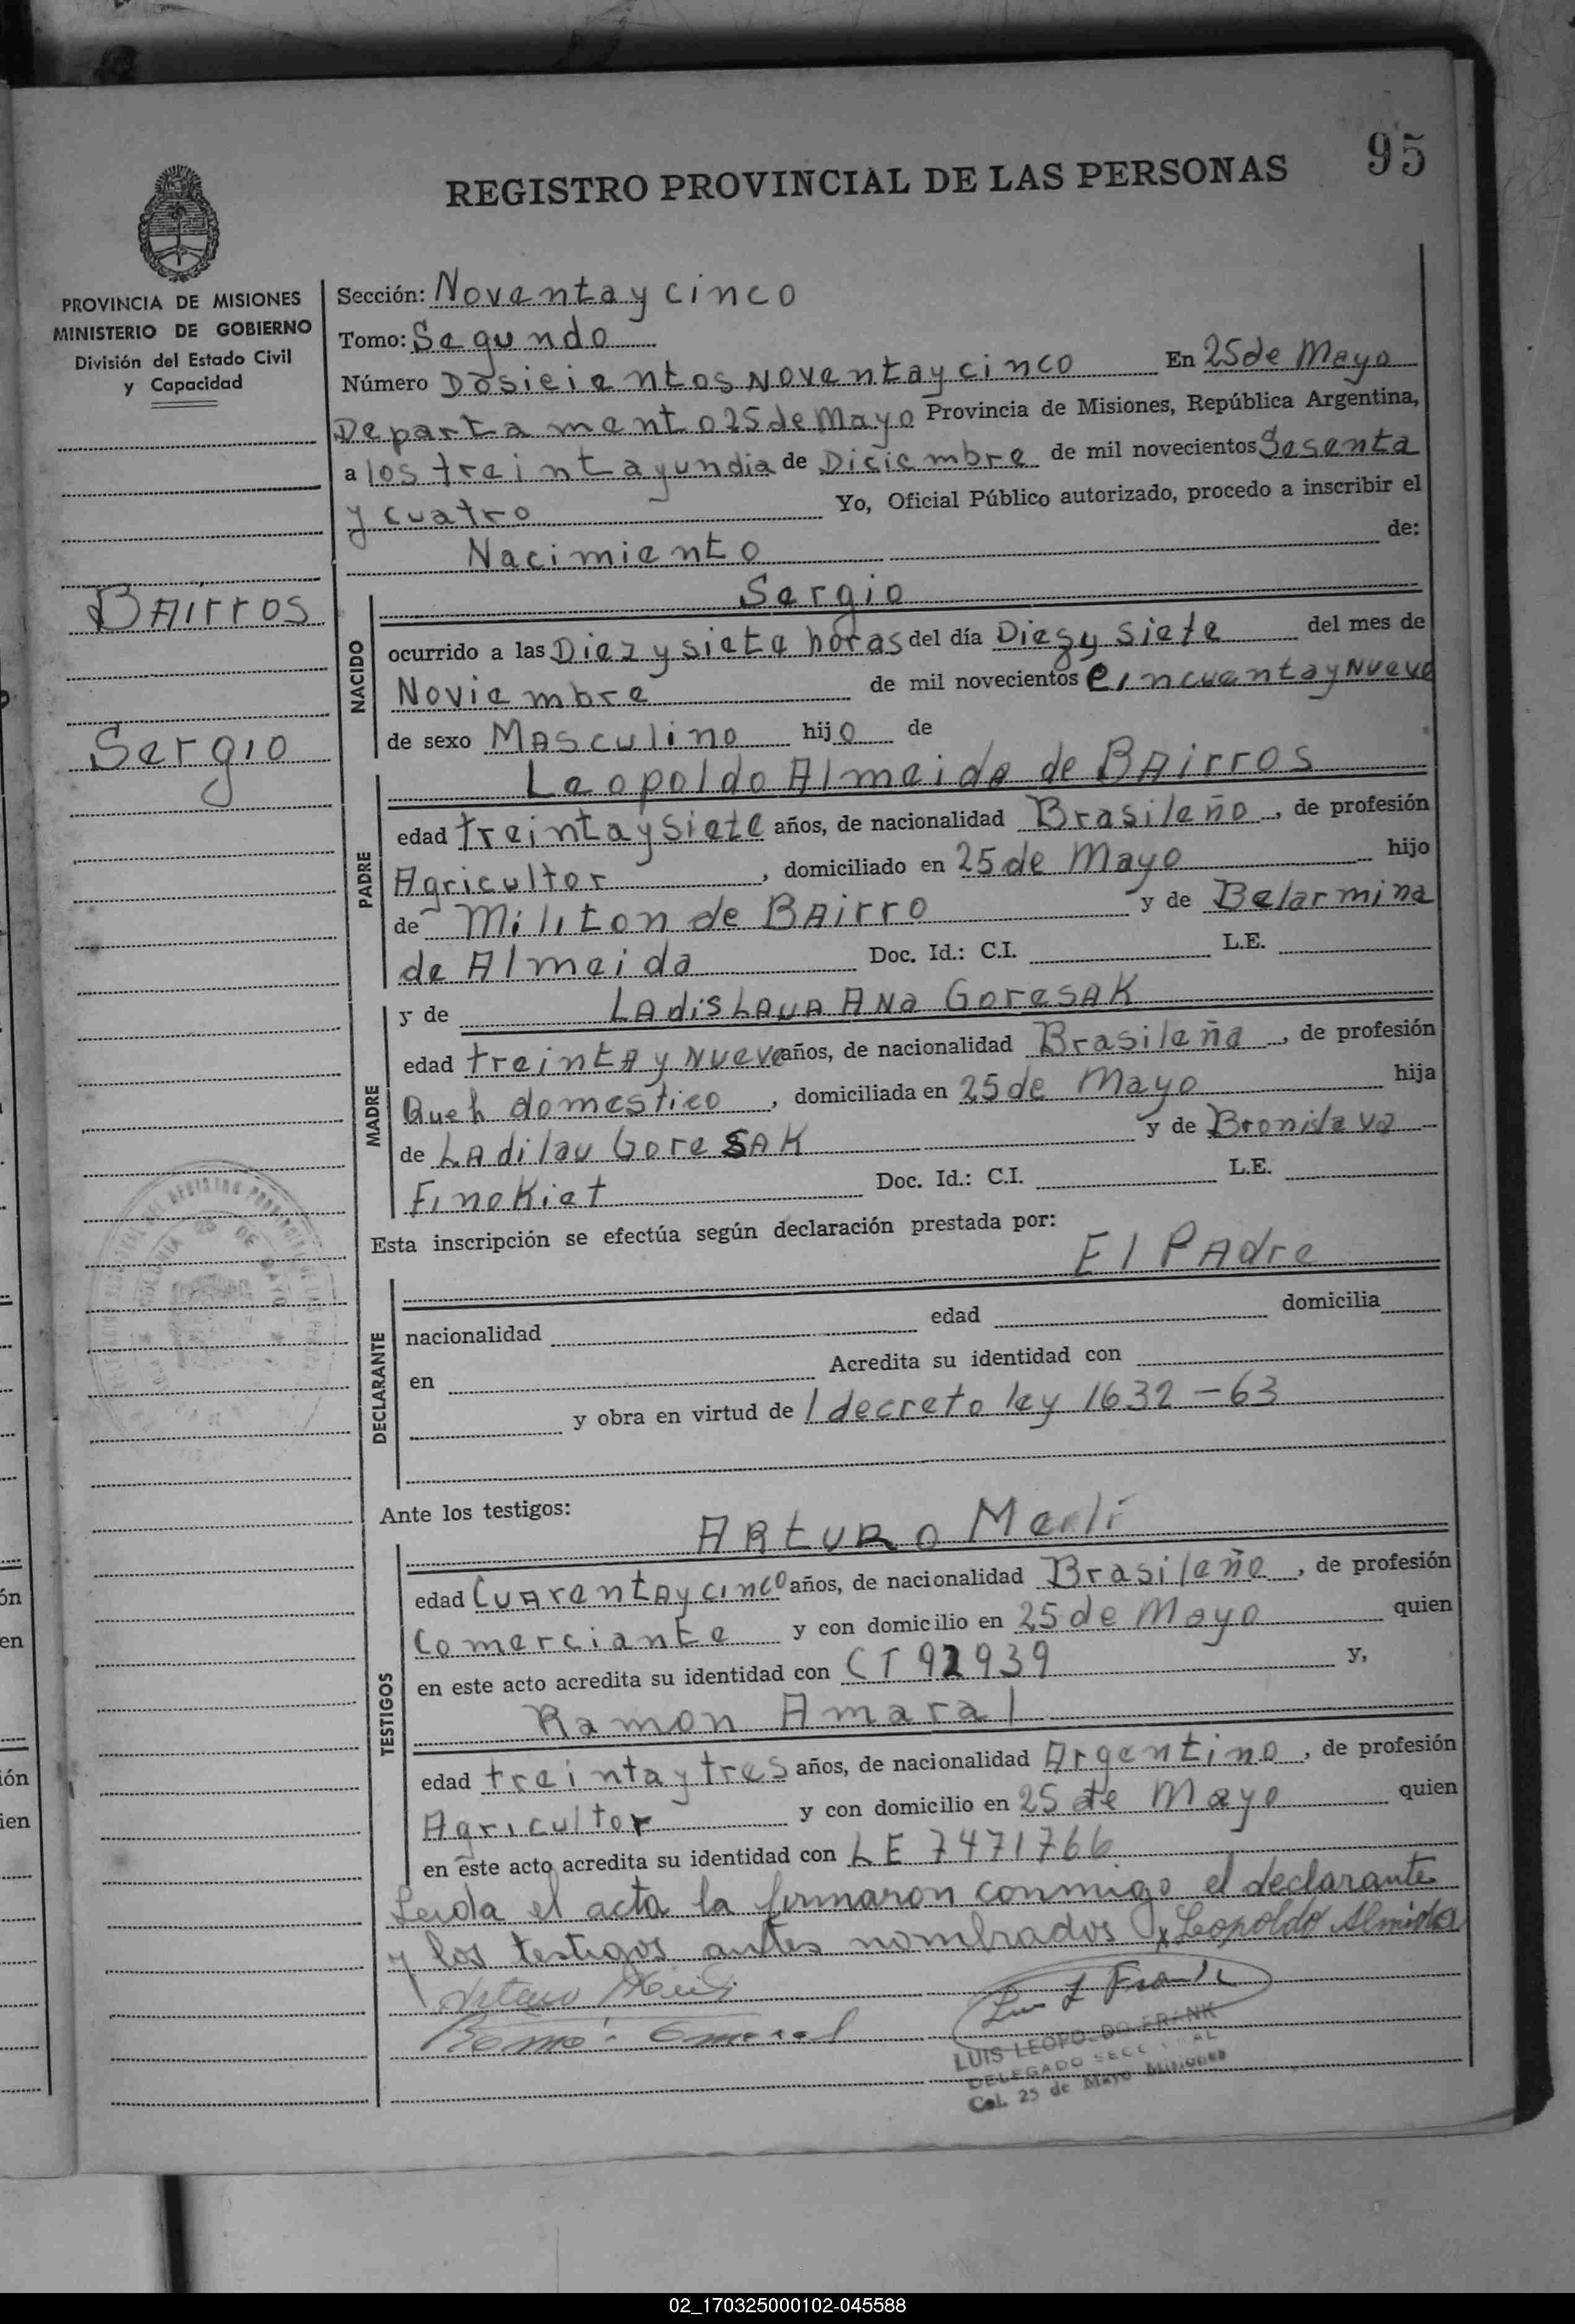 95
REGISTRO PROVINCIAL DE LAS PERSONAS
PROVINCIA DE MISIONES
MINISTERIO DE GOBIERNO
División del Estado Civil
y Capacidad
BAirros
Sergio
Sección: Noventa y cinco
Tomo: Segundo
Número Dosicientos Noventa y cinco En 25 de Mayo
Departamento 25 de Mayo Provincia de Misiones, República Argentina,
a los treinta y un dia de Diciembre de mil novecientos Sesenta
y cuatro Yo, Oficial Público autorizado, procedo a inscribir el
Nacimiento de:
NACIDO
Sergio
ocurrido a las Diez y siete horas del día Diez y siete del mes de
Noviembre de mil novecientos cincuenta y Nueve
de sexo Masculino hijo de
PADRE
Leopoldo Almeida de BAirros
edad treinta y siete años, de nacionalidad Brasileño, de profesión
Agricultor, domiciliado en 25 de Mayo hijo
de Militon de BAirro y de Belarmina
de Almeida Doc. Id.: C.I. L.E.
MADRE
y de LAdisLAuA ANa GoresAK
edad treinta y Nueve años, de nacionalidad Brasileña, de profesión
Queh domestico, domiciliada en 25 de Mayo hija
de LAdilau GoreSAK y de Bronislava
Finokiet Doc. Id.: C.I. L.E.
Esta inscripción se efectúa según declaración prestada por:
DECLARANTE
El PAdre
nacionalidad edad domicilia
en Acredita su identidad con
y obra en virtud de l decreto ley 1632-63
Ante los testigos:
TESTIGOS
ARturo
edad CuArentAy cinco años, de nacionalidad Brasileño, de profesión
Comerciante y con domicilio en 25 de Mayo quien
en este acto acredita su identidad con CI 92939 y,
Ramon Amaral
edad treinta y tres años, de nacionalidad Argentino, de profesión
Agricultor y con domicilio en 25 de Mayo quien
en este acto acredita su identidad con LE 7471766
Leida el acta la firmaron conmigo el declarante
y los testigos antes nombrados Leopoldo Almida
Luis L Frank
LUIS LEOPOLDO FRANK
DELEGADO SECCIONAL
Col. 25 de Mayo Misiones
02_170325000102-045588